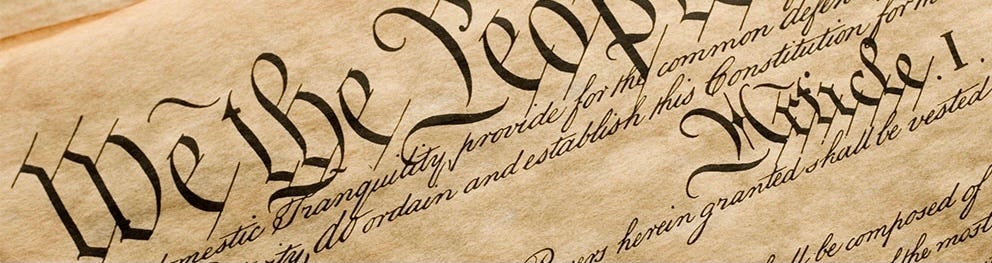 We the People
omestic Tranquility, provide for the common defen
erty, do ordain and establish this Constitution for
Article. I.
ers herein granted shall be vested
ll be composed of
the most